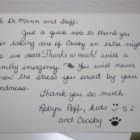 Dr. Mann and Staff,
Just a quick note to thank you
for taking care of Crosby an extra night
so we could Thanks so much! with a
family emergency. You will never
know the stress you saved by your
kindness.
Thank you so much
Robyn Poff, kids
and Crosby